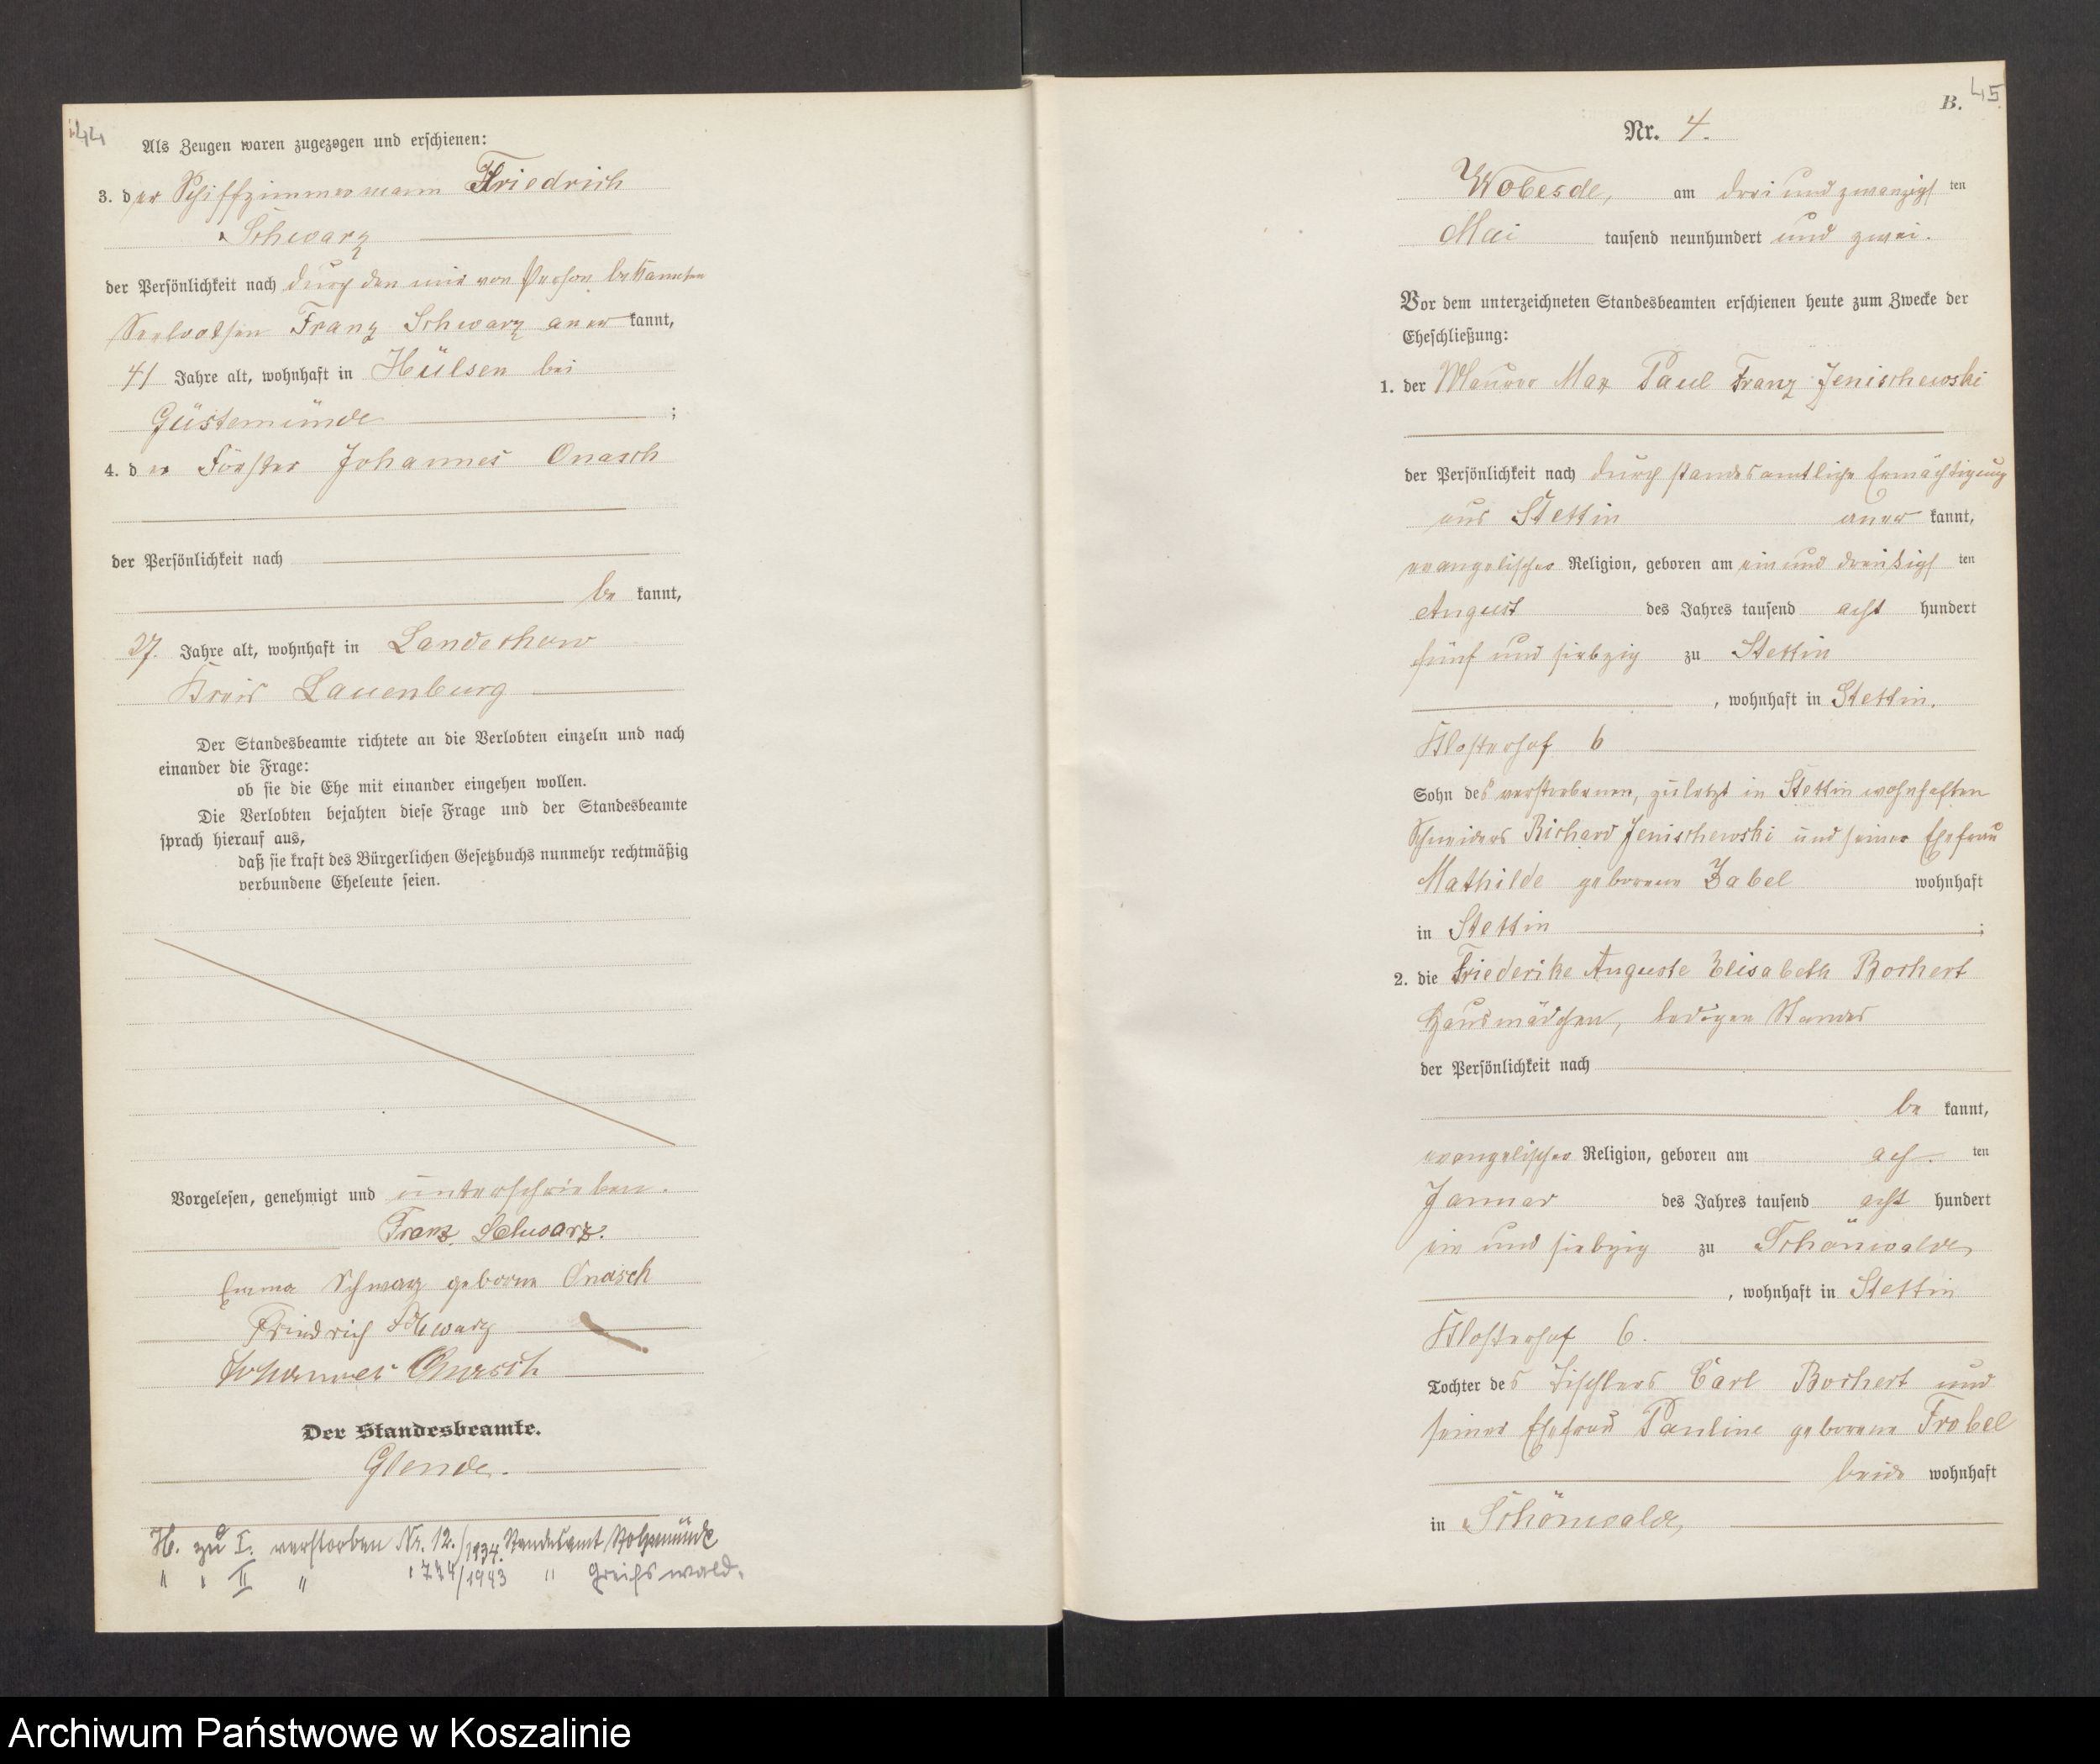 44
Als Zeugen waren zugezogen und erschienen:
3. der Schiffzimmermann Friedrich
Schwarz
der Persönlichkeit nach durch den mir von Person bekannten
Seelootsen Franz Schwarz aner kannt,
41 Jahre alt, wohnhaft in Hülsen bei
Güstemünde ;
4. der Förster Johannes Onasch
der Persönlichkeit nach
be kannt,
37. Jahre alt, wohnhaft in Landechow
Kreis Lauenburg
Der Standesbeamte richtete an die Verlobten einzeln und nach
einander die Frage:
ob sie die Ehe mit einander eingehen wollen.
Die Verlobten bejahten diese Frage und der Standesbeamte
sprach hierauf aus,
daß sie kraft des Bürgerlichen Gesetzbuchs nunmehr rechtmäßig
verbundene Eheleute seien.
Vorgelesen, genehmigt und unterschrieben.
Franz Schwarz.
Emma Schwarz geborne Onasch
Friedrich Schwarz
Johannes Onasch
Der Standesbeamte.
Glende.
H. zu I. verstorben Nr. 12./1934. Standesamt Stolpmünde
" " II " 774/1943 " Greifswald.
B. 45
Nr. 4.
Wobesde, am drei und zwanzigsten
Mai tausend neunhundert und zwei.
Vor dem unterzeichneten Standesbeamten erschienen heute zum Zwecke der
Eheschließung:
1. der Maurer Max Paul Franz Jenischewski
der Persönlichkeit nach durch standesamtliche Ermächtigung
aus Stettin aner kannt,
evangelischer Religion, geboren am ein und dreißigsten
August des Jahres tausend acht hundert
fünf und siebzig zu Stettin
, wohnhaft in Stettin.
Klosterhof 6
Sohn des verstorbenen, zuletzt in Stettin wohnhaften
Schneiders Richard Jenischewski und seiner Ehefrau
Mathilde geborene Zabel wohnhaft
in Stettin ;
2. die Friederike Auguste Elisabeth Borhert
Hausmädchen, ledigen Standes
der Persönlichkeit nach
be kannt,
evangelischer Religion, geboren am ach ten
Januar des Jahres tausend acht hundert
ein und siebzig zu Schönwalde
, wohnhaft in Stettin
Klosterhof 6.
Tochter des Tischlers Carl Borhert und
seiner Ehefrau Pauline geborene Frobel
beide wohnhaft
in Schönwalde
Archiwum Państwowe w Koszalinie